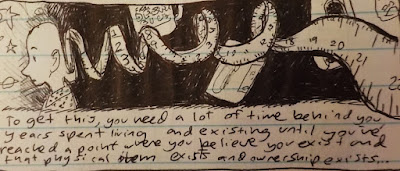 To get this, you need a lot of time behind you
years spent living and existing until you've
reached a point where you believe you exist and
that physical item exists and ownership exists...